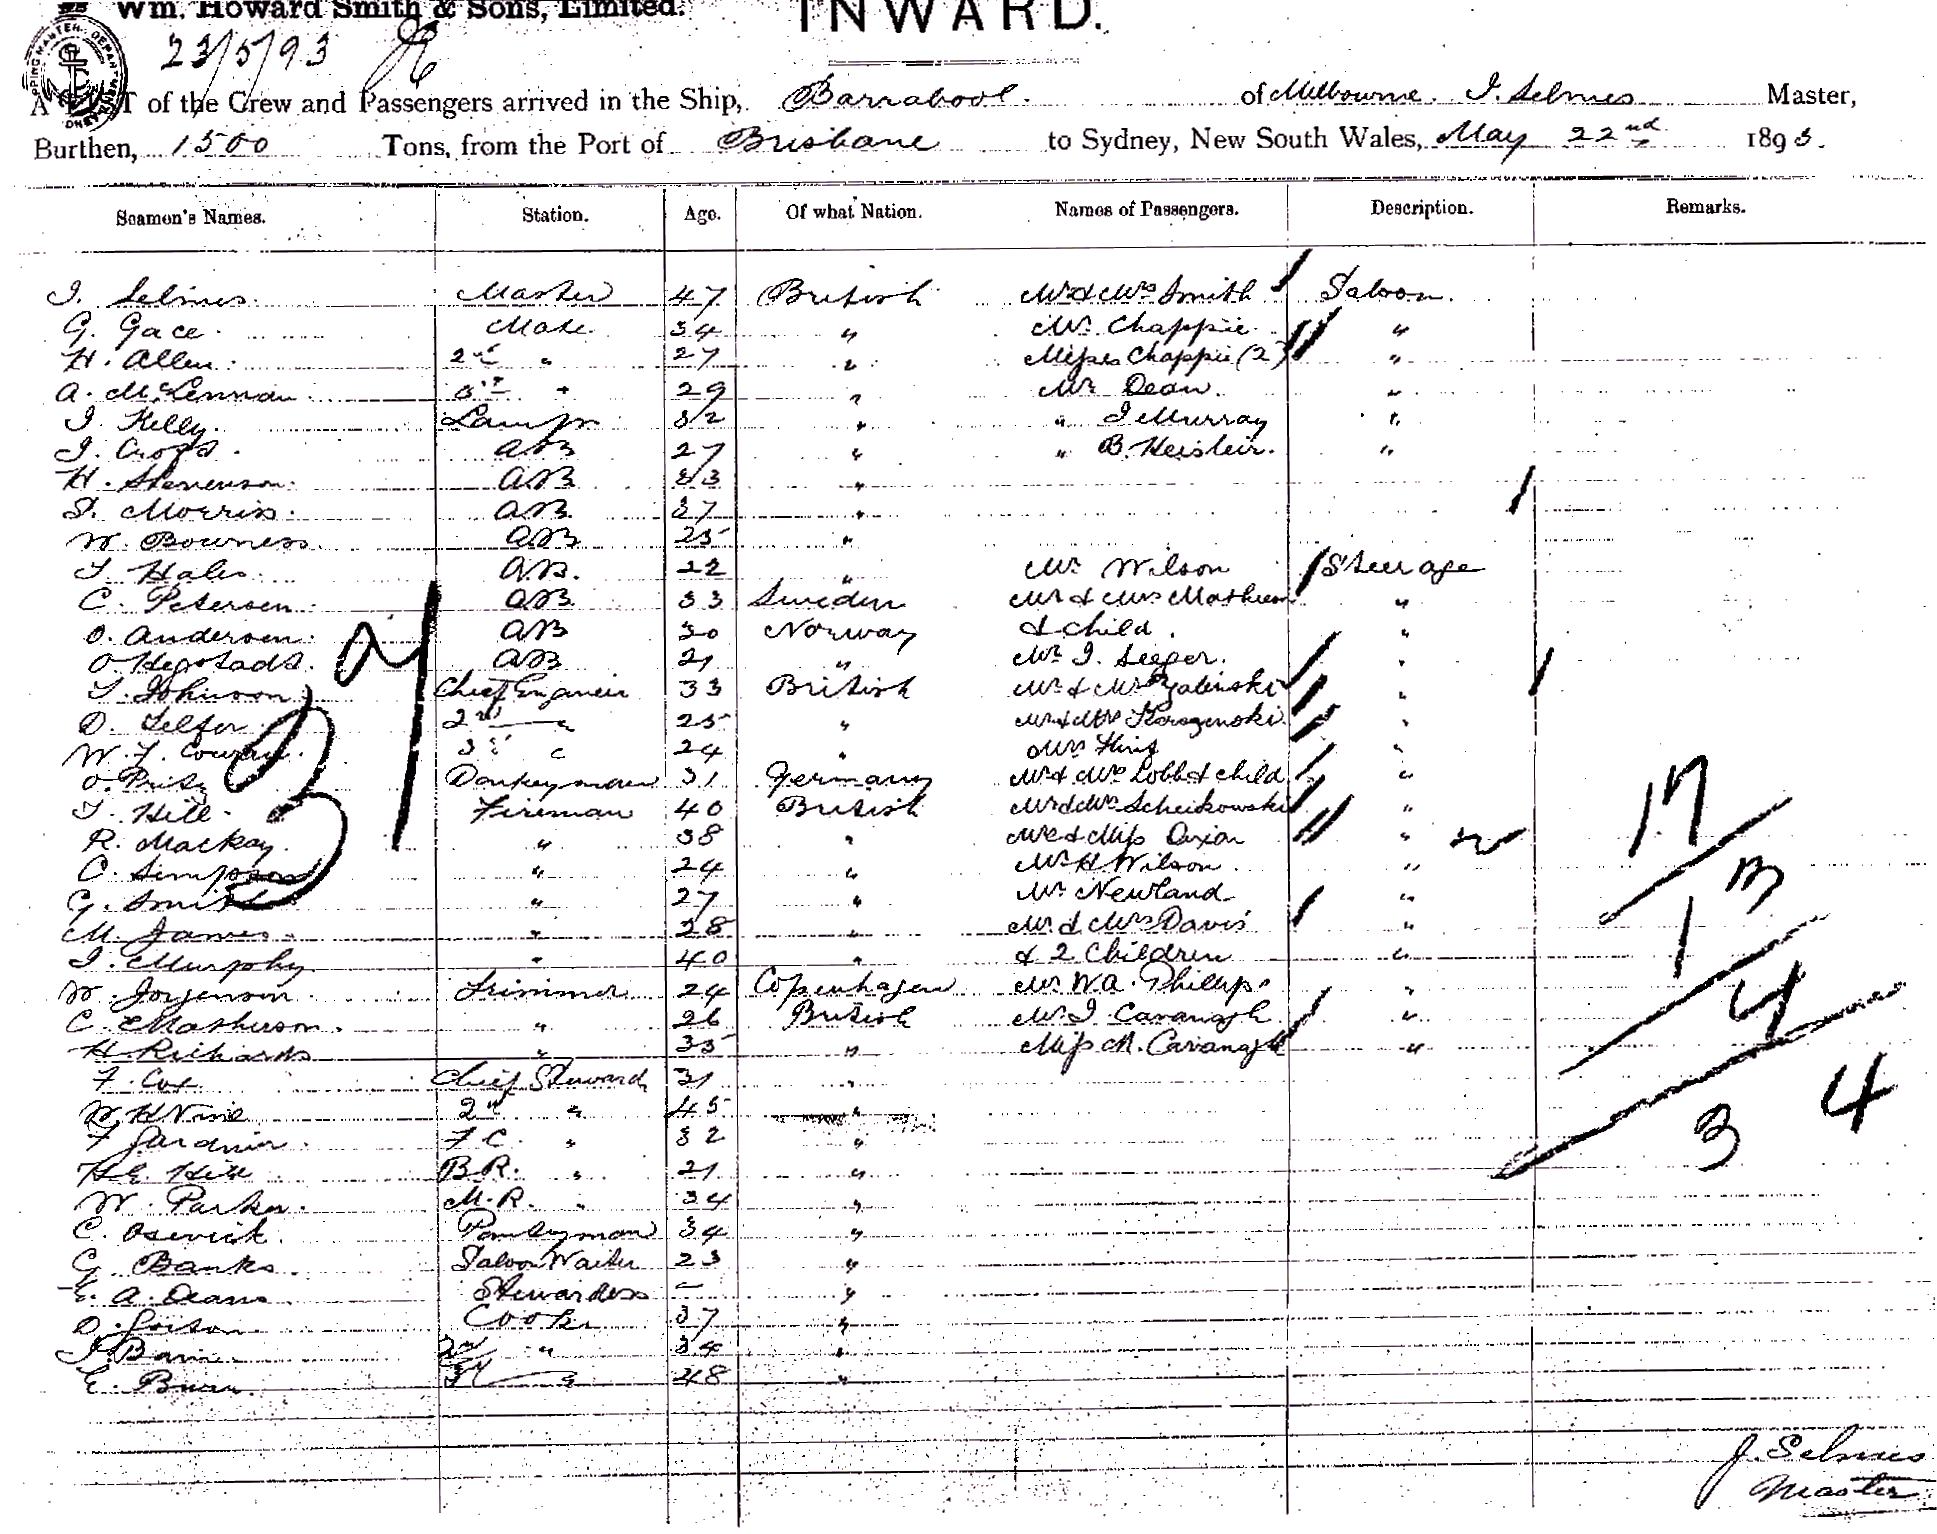 Wm. Howard Smith & Sons, Limited.
INWARD.
23/5/93
A LIST of the Crew and Passengers arrived in the Ship, Barrabool. of Melbourne. J. Selmes Master,
Burthen, 1500 Tons, from the Port of Brisbane to Sydney, New South Wales, May 22nd 1893.
Seamen's Names. Station. Age. Of what Nation. Names of Passengers. Description. Remarks.
J. Selmes. Master 47 British Mr & Mrs Smith Saloon.
G. Gace. Mate 34 " Mrs Chappie. "
H. Allen. 2nd " 27 " Misses Chappie (2) "
A. McLennan 3rd " 29 " Mr Dean. "
J. Kelly. Lamps 32 " " J Murray "
J. 27 " " B. "
AB
H. Stevenson. AB 33 "
S. Morris. AB 37 "
W. Bowness. AB 25 "
T. Hales. AB. 22 " Mr Wilson Steerage
C. Petersen. AB 33 Sweden Mr & Mrs "
O. Andersen. AB 30 Norway & Child. "
O AB 21 " Mr J. Seeger. "
T. Johnson Chief Engineer 33 British Mr & Mrs "
D. Telfer. 2nd " 25 " Mr & Mrs "
W. T. 3rd " 24 " Mrs "
O. Donkeyman 31 Germany Mr & Mrs Lobb & child "
T. Hill. Fireman 40 British Mr & Mrs Scheikowski "
R. Mackay. " 38 " & Miss Dixon "
C. Simpson " 24 " Mr H Wilson. "
G. Smith " 27 " Mr Newland "
M. James. " 28 " Mr & Mrs Davis "
J. Murphy. " 40 " & 2 Children "
W. Jorgenson Trimmer 24 Copenhagen Mr W.A. Phillips "
C. Matherson. " 26 British Mr J. Cavanagh "
H. Richards " 35 " Miss M. Cavanagh "
F. Cox Chief Steward 31 "
W. H 2nd " 45 "
F Gardner. F.C. " 32 "
H.E. Hill B.R. " 21 "
W. Parker. M.R. " 34 "
C. Pantryman 34 "
G. Banks. Saloon Waiter 23 "
E. A. Deans Stewardess – "
D. Cook 37 "
J. Bain 2nd " 34 "
E. 3rd " 48 "
31
17
13
1 4
3 4
J. Selmes
Master